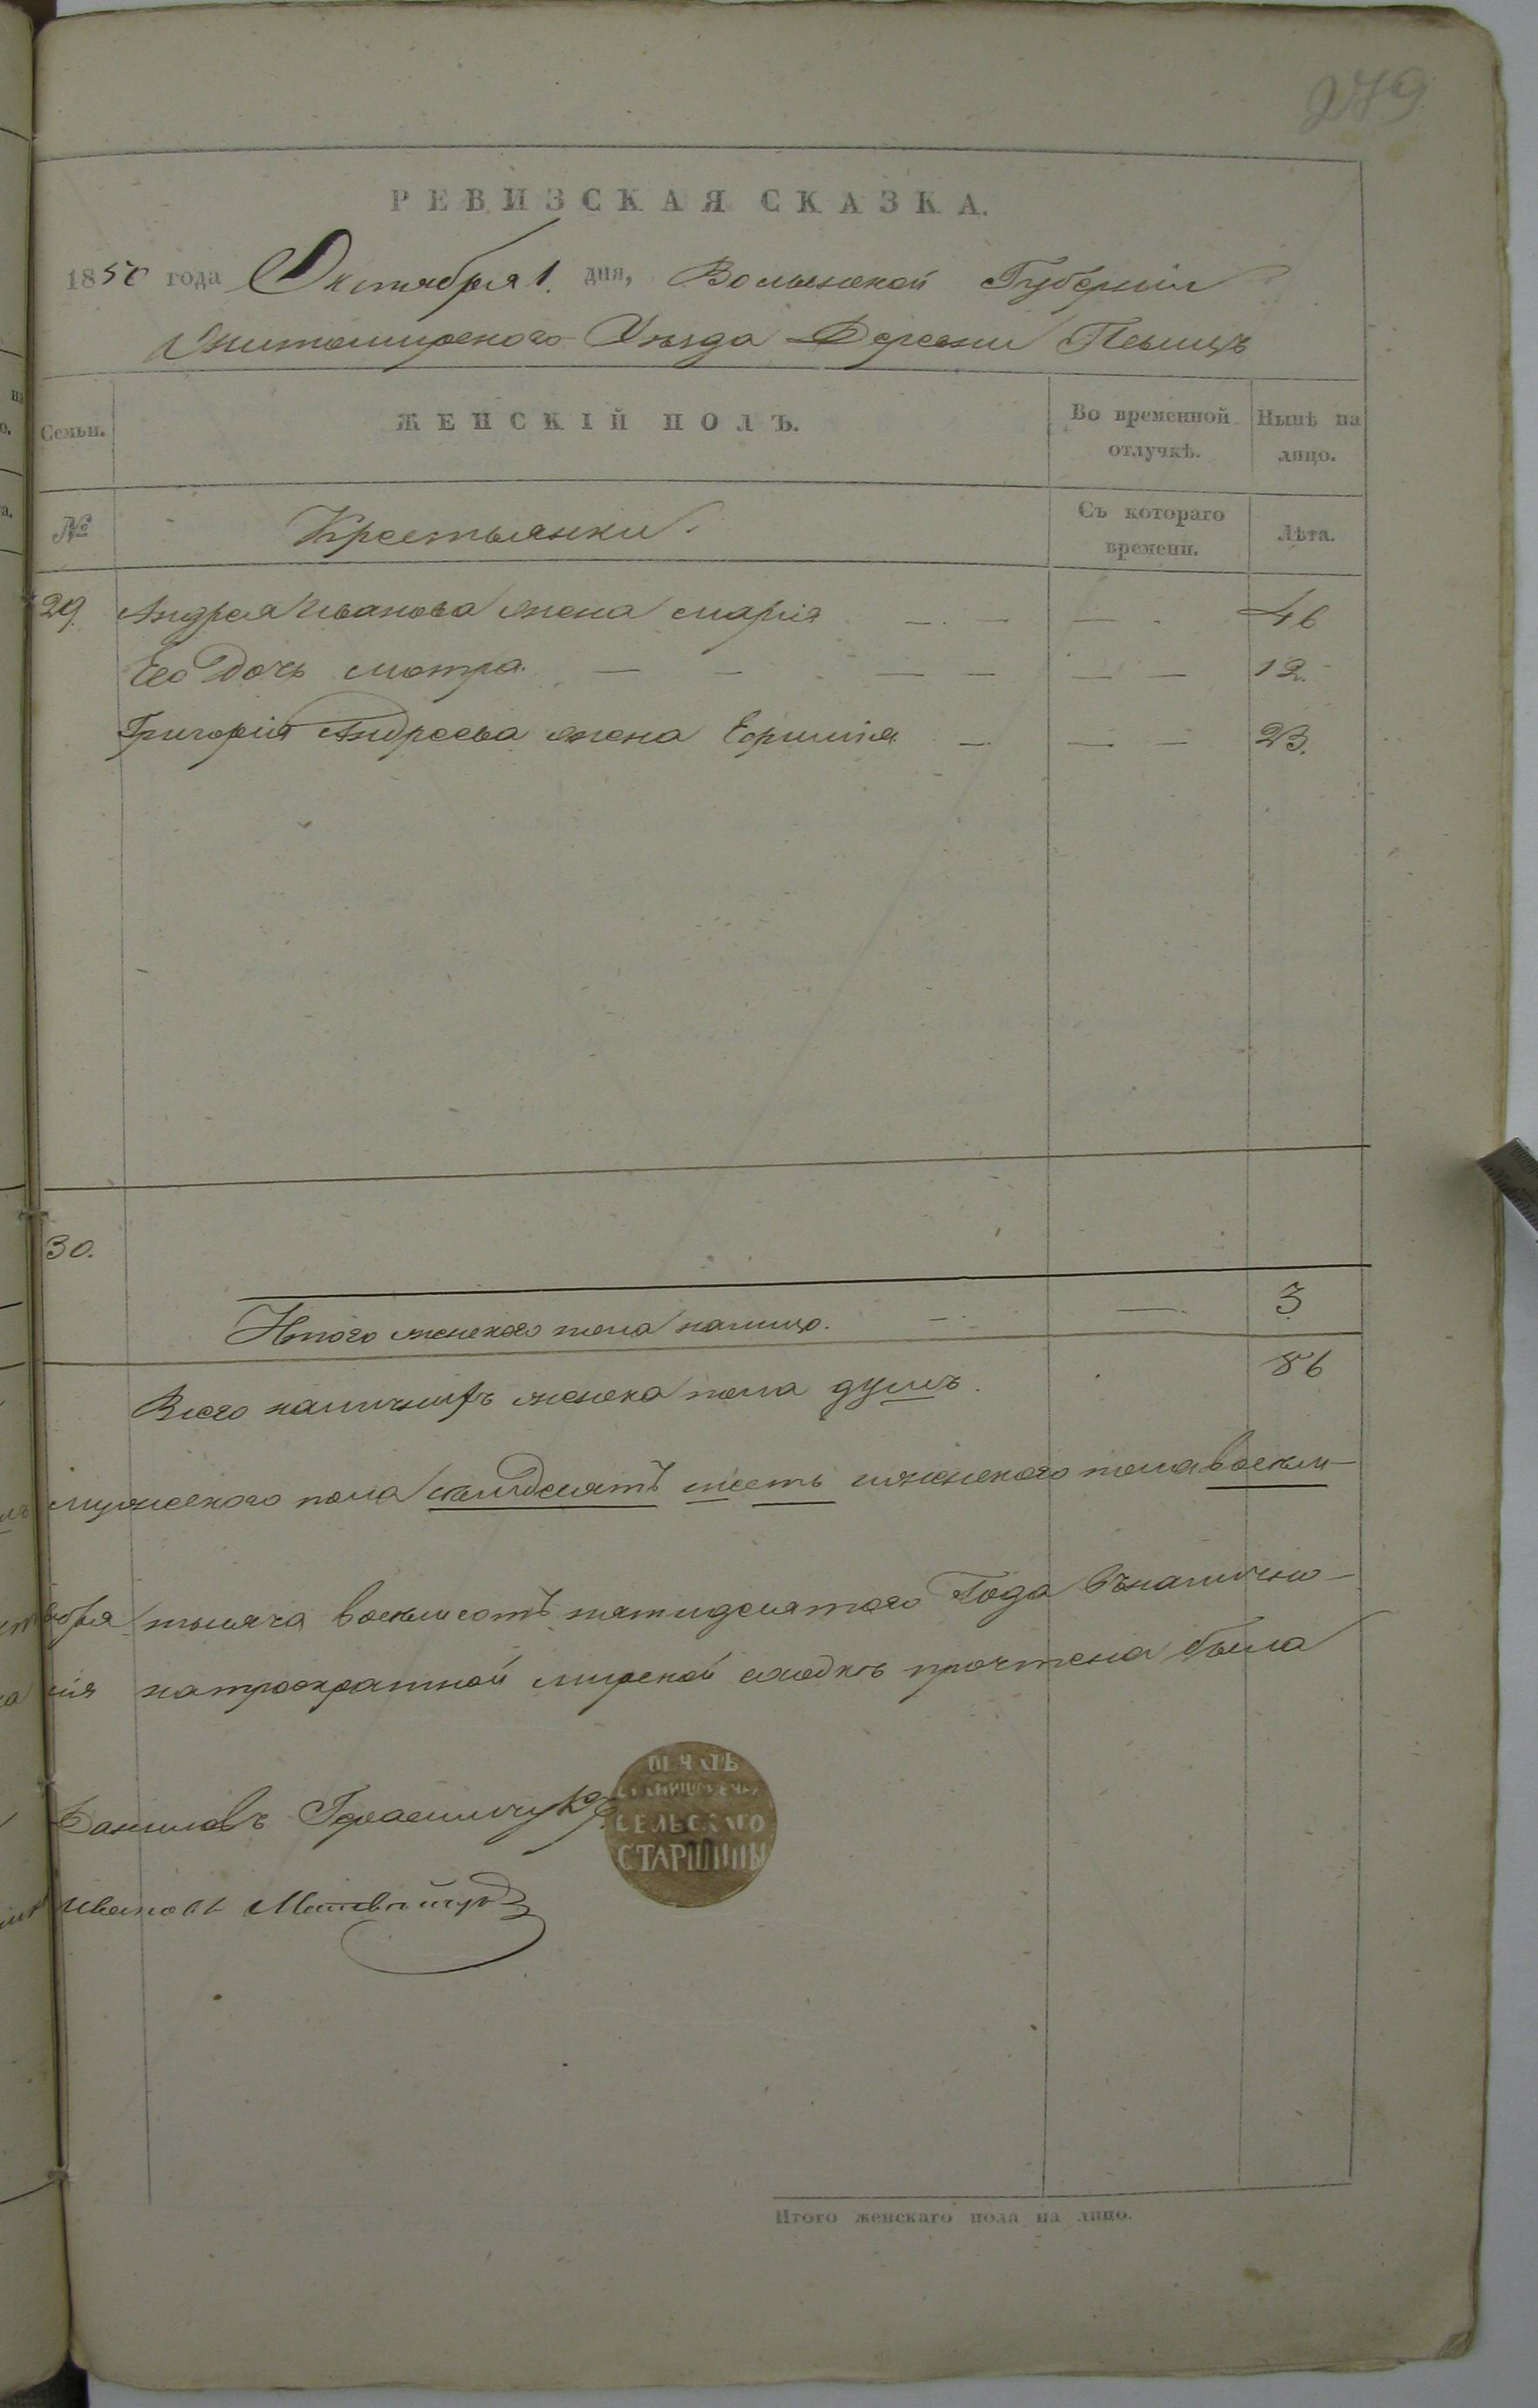 279
РЕВИЗСКАЯ СКАЗКА.
1850 года Октября 1. дня, Волынской Губерніи
Житомирского Уѣзда Деревни
Семьи.
ЖЕНСКІЙ ПОЛЪ.
Во временной отлучкѣ.
Нынѣ на лицо.
№
Крестьянки.
Съ котораго времени.
Лѣта.
29. Андрея Иванова жена марія — — — 46
Его Дочь мотра — — — — — — 12.
Григорія Андреева жена — — — 23.
30.
Итого женского пола налицо. — — 3
Всего наличныхъ женска пола душъ. 86
мужеского пола шесть женского пола восем—
тысяча восемсотъ пятидесятого Года
мирской сходкѣ прочтена была
Даниловъ
ПЕЧАТЬ
СЕЛЬСКАГО
СТАРШИНЫ
Ивановъ
Итого женскаго пола на лицо.